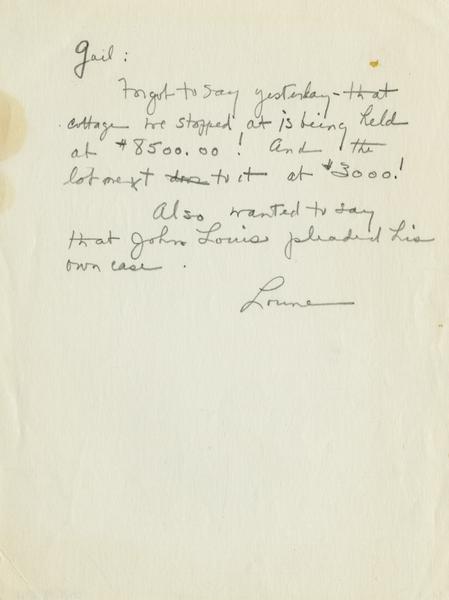 Gail:
Forgot to say yesterday - that
cottage we stopped at is being held
at $8500.00! And the
lot next to it at $3000.!
Also wanted to say
that John Louis pleaded his
own case.